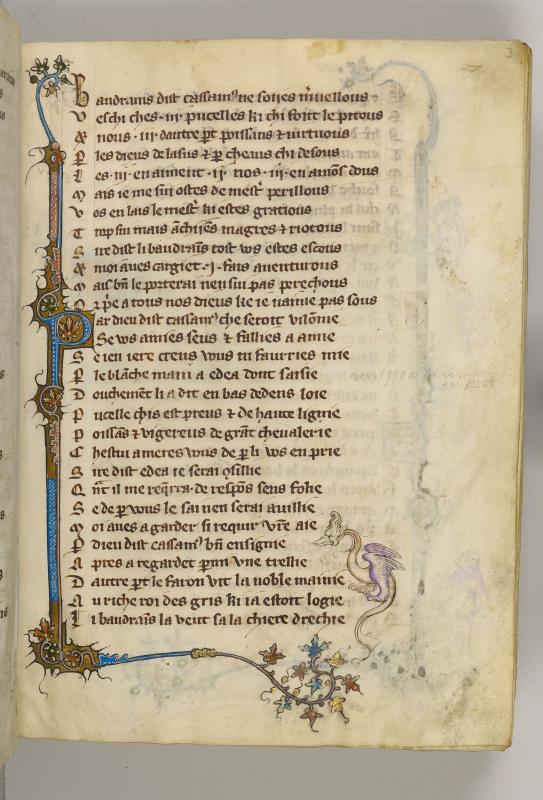 3
Baudrains dist cassamꝰ ne soiies mͥuellous
Veschi ches ·iii· pucelles ki chi font le pitous
& nous ·iii· dautre pt poissans & uirtuous
P les dieus de lasus & p cheaus chi desous
Les ·iii· en aiment ·ii· nos ·iii· en amōs dous
Mais ie me sui ostes de mestͥ perillous
Vos en lais le mestͥ ki estes gratious
Trop sui mais āchiiēs magres & riotous
Sire dist li baudrains tost vos estes escous
& moi aues cargiet ·i· fais auenturous
Mais bn̄ le porterai nen sui pas perechous
Or pͥe a tous nos dieus ke ie uaine pas sous
Par dieu dist cassamꝰ che seroit vilōnie
Se vos amies seus & fallies a amie
Se ien iere creus vous ni faurries mie
P le blāche main a edea dont saisie
Douchemēt li a dit en bas dedens loie
Pucelle chis est preus & de haute lignie
Poissās & vigereus de grāt cheualerie
Chestui ameres vous de p li vos en prie
Sire dist edea ie serai ꝯsillie
Qn̄t il me reqͥrra de respōs sens folie
Se de p vous le fai nen serai auillie
Moi aues a garder si requir vr̄e aie
P dieu dist cassamꝰ bn̄ ensignie
Apres a regardet pmi vne trellie
Dautre pt le faron vit la noble mainie
Au riche roi des gris ki ia estoit logie
Li baudrāis la veut sa la chiere drechie